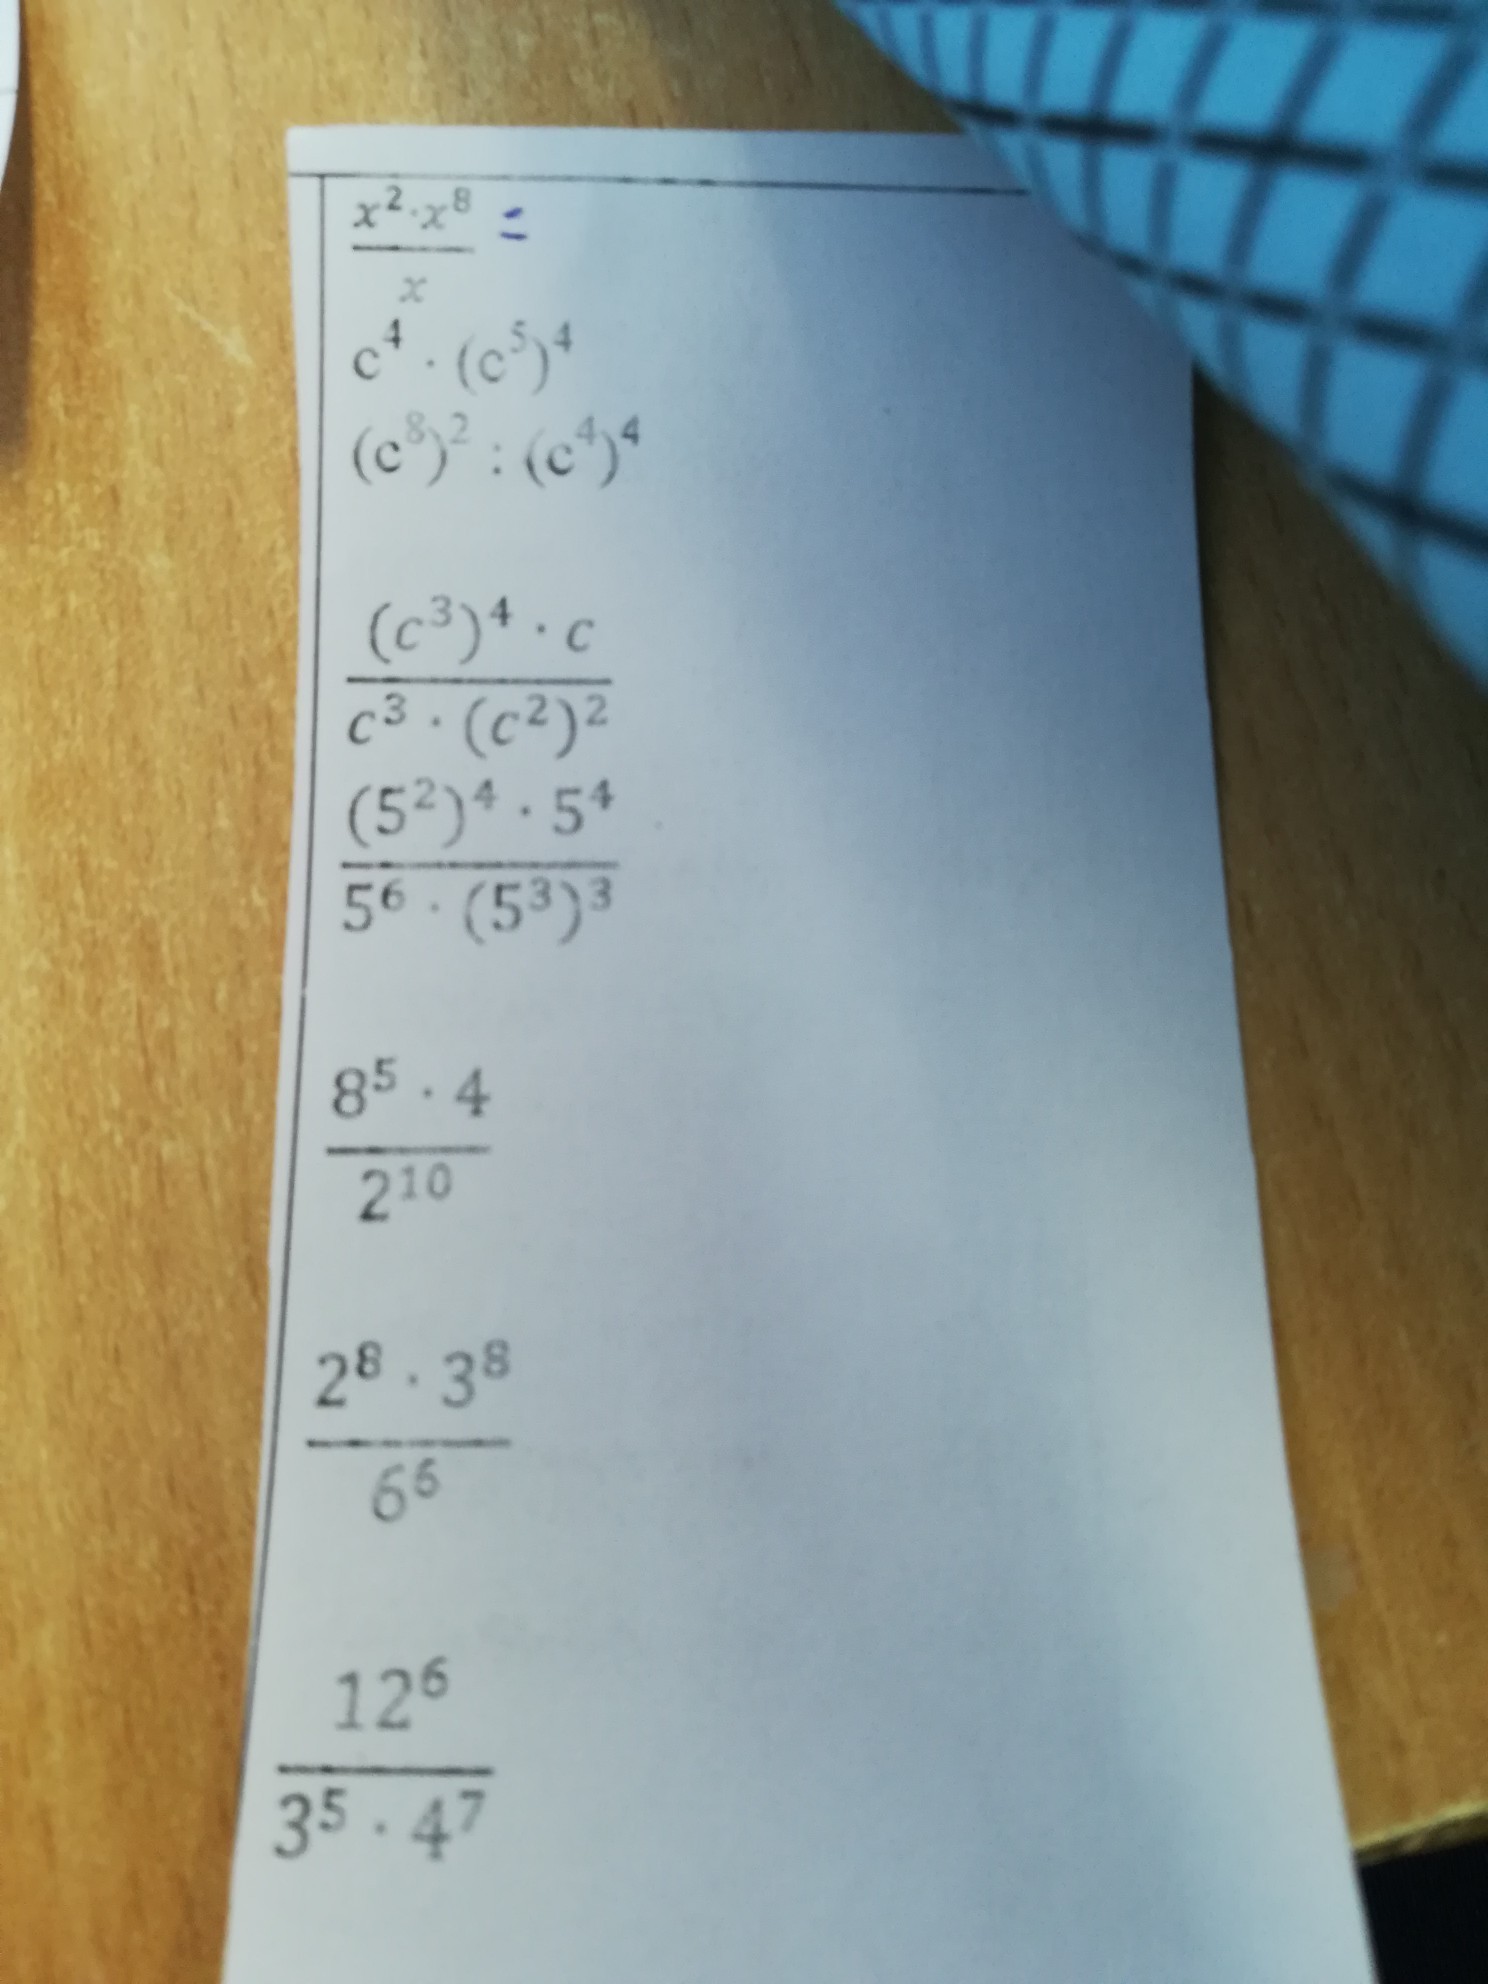 x²·x⁸ =
x
c⁴ · (c⁵)⁴
(c⁸)² : (c⁴)⁴
(c³)⁴ · c
c³ · (c²)²
(5²)⁴ · 5⁴
5⁶ · (5³)³
8⁵ · 4
2¹⁰
2⁸ · 3⁸
6⁶
12⁶
3⁵ · 4⁷